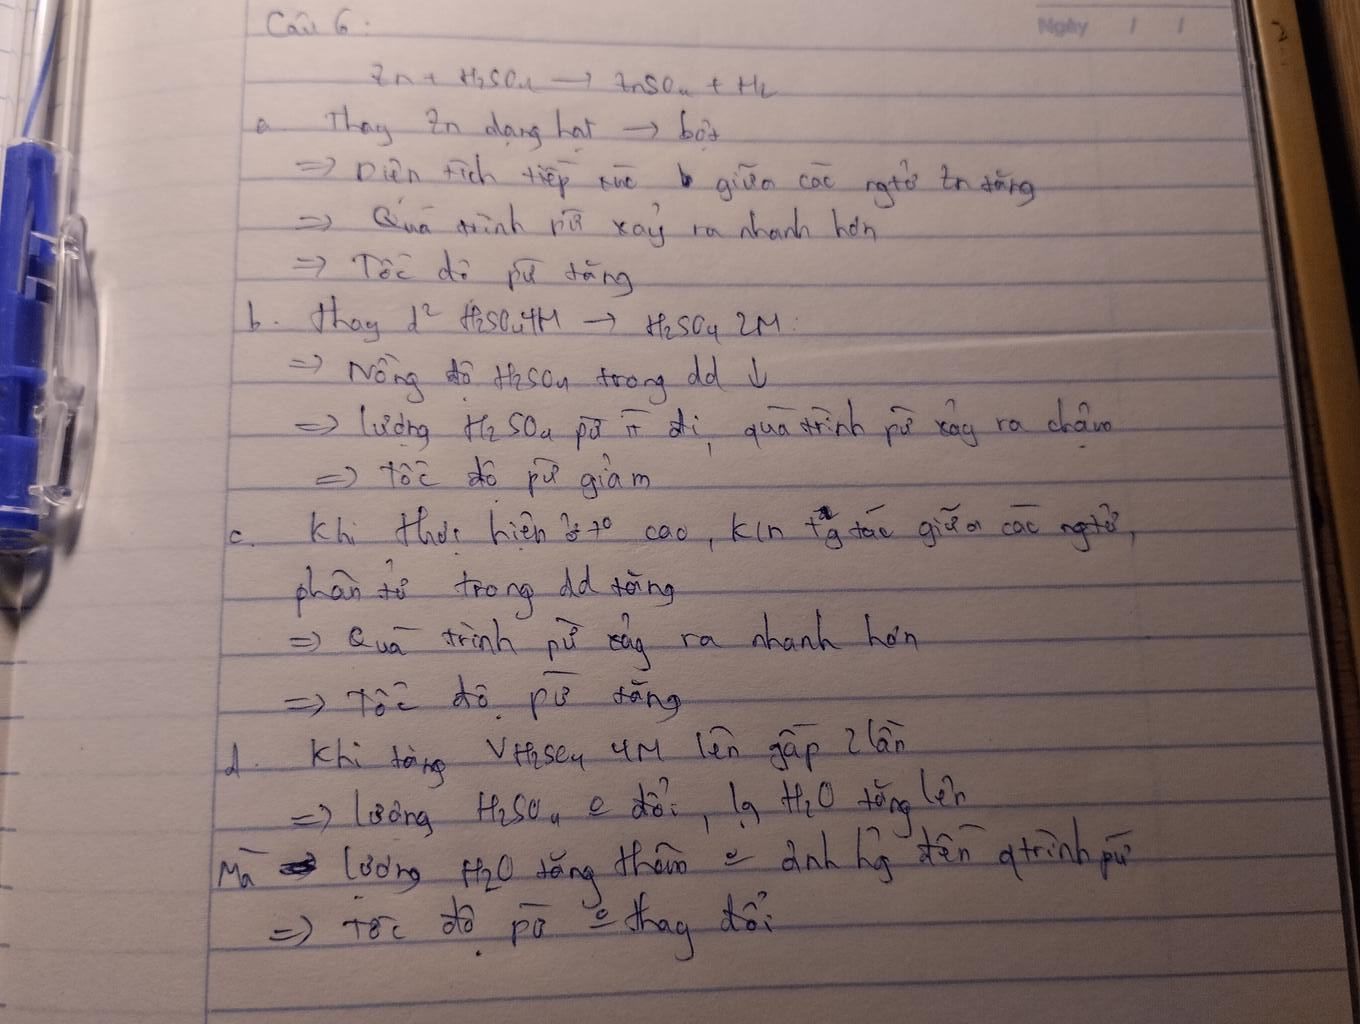 Ngày / /
2
Câu 6:
Zn + H₂SO₄ → ZnSO₄ + H₂
a. Thay Zn dạng hạt → bột
=> Diện tích tiếp xúc giữa các ngtử Zn tăng
=> Quá trình pứ xảy ra nhanh hơn
=> Tốc độ pứ tăng
b. thay d² H₂SO₄ 4M → H₂SO₄ 2M:
=> Nồng độ H₂SO₄ trong dd ↓
=> lượng H₂SO₄ pứ ít đi, quá trình pứ xảy ra chậm
=> Tốc độ pứ giảm
c. Khi thực hiện ở t° cao, k/n tg tác giữa các ngtử,
phân tử trong dd tăng
=> Quá trình pứ xảy ra nhanh hơn
=> Tốc độ pứ tăng
d. Khi tăng VH₂SO₄ 4M lên gấp 2 lần
=> lượng H₂SO₄ đổi, lg H₂O tăng lên
Mà lượng H₂O tăng thêm ảnh hg đến qtrình pứ
=> Tốc độ pứ thay đổi